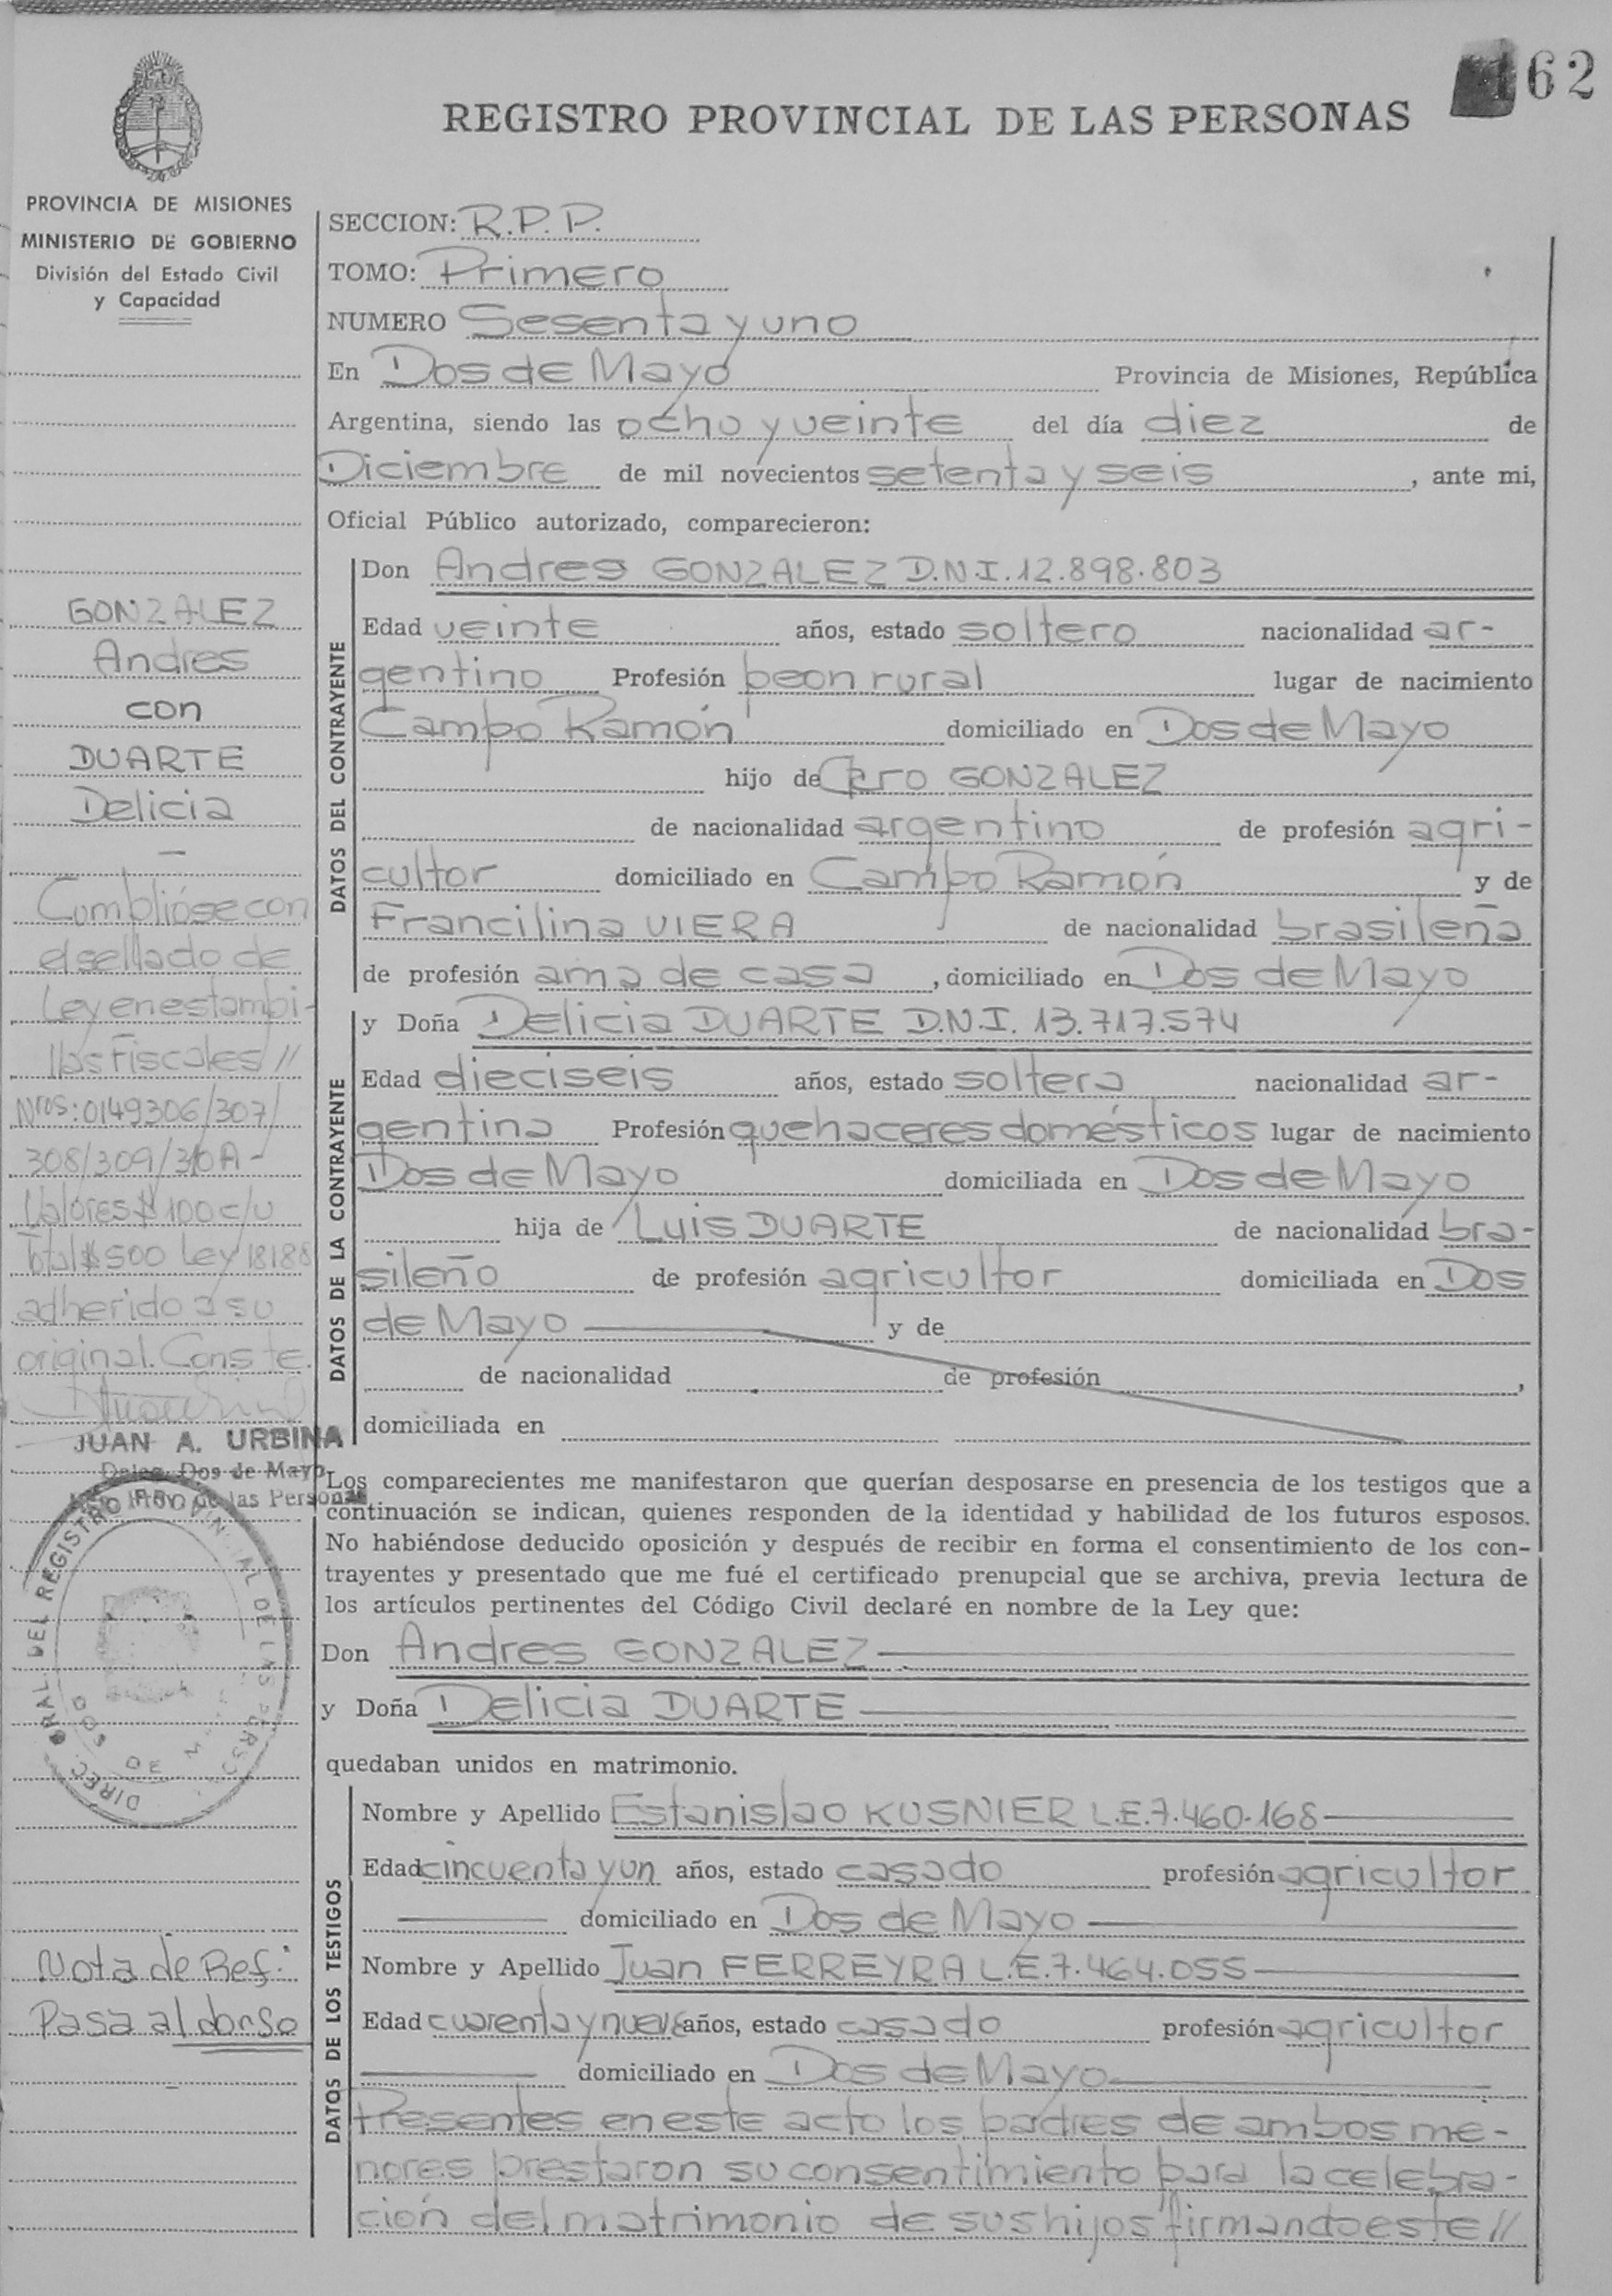 162
REGISTRO PROVINCIAL DE LAS PERSONAS
PROVINCIA DE MISIONES
MINISTERIO DE GOBIERNO
División del Estado Civil
y Capacidad
SECCION: R.P.P.
TOMO: Primero
NUMERO Sesenta y uno
En Dos de Mayo Provincia de Misiones, República
Argentina, siendo las ocho y veinte del día diez de
Diciembre de mil novecientos setenta y seis, ante mi,
Oficial Público autorizado, comparecieron:
DATOS DEL CONTRAYENTE
Don Andres GONZALEZ D.N.I. 12.898.803
Edad veinte años, estado soltero nacionalidad ar-
gentino Profesión peon rural lugar de nacimiento
Campo Ramón domiciliado en Dos de Mayo
hijo de GONZALEZ
de nacionalidad argentino de profesión agri-
cultor domiciliado en Campo Ramón y de
Francilina VIERA de nacionalidad brasileña
de profesión ama de casa, domiciliado en Dos de Mayo
DATOS DE LA CONTRAYENTE
y Doña Delicia DUARTE D.N.I. 13.717.574
Edad dieciseis años, estado soltera nacionalidad ar-
gentina Profesión quehaceres domésticos lugar de nacimiento
Dos de Mayo domiciliada en Dos de Mayo
hija de Luis DUARTE de nacionalidad bra-
sileño de profesión agricultor domiciliada en Dos
de Mayo y de
de nacionalidad de profesión ,
domiciliada en
Los comparecientes me manifestaron que querían desposarse en presencia de los testigos que a
continuación se indican, quienes responden de la identidad y habilidad de los futuros esposos.
No habiéndose deducido oposición y después de recibir en forma el consentimiento de los con-
trayentes y presentado que me fué el certificado prenupcial que se archiva, previa lectura de
los artículos pertinentes del Código Civil declaré en nombre de la Ley que:
Don Andres GONZALEZ
y Doña Delicia DUARTE
quedaban unidos en matrimonio.
DATOS DE LOS TESTIGOS
Nombre y Apellido Estanislao KUSNIER L.E.7.460.168
Edad cincuenta y un años, estado casado profesión agricultor
domiciliado en Dos de Mayo
Nombre y Apellido Juan FERREYRA L.E.7.464.055
Edad cuarenta y nueve años, estado casado profesión agricultor
domiciliado en Dos de Mayo
Presentes en este acto los padres de ambos me-
nores prestaron su consentimiento para la celebra-
ción del matrimonio de sus hijos firmando este //
GONZALEZ
Andres
con
DUARTE
Delicia
Cumplióse con
el sellado de
Ley en estampi-
llas Fiscales //
Nros: 0149306/307/
308/309/310A-
Valores $ 100 c/u
Total $ 500 Ley 18188
adherido a su
original. Conste.
JUAN A. URBINA
Deleg. Dos de Mayo
Reg. Prov. de las Personas
DIREC. GRAL. DEL REGISTRO PROVINCIAL DE LAS PERSO
DOS DE M
Nota de Ref:
Pasa al dorso